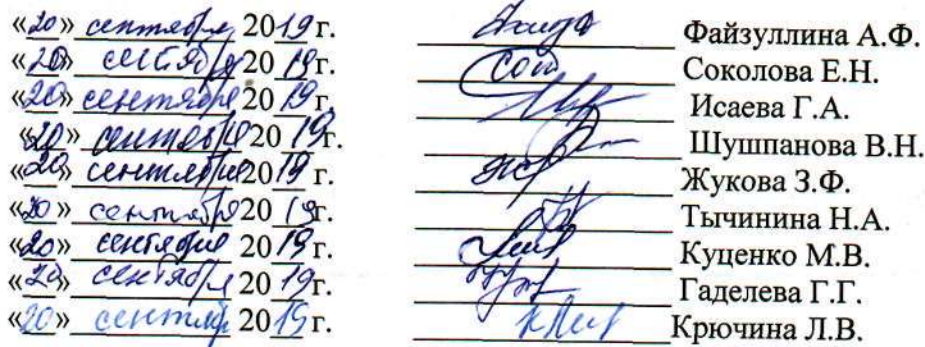 «20» сентября 2019 г. Файзуллина А.Ф.
«20» сентября 2019 г. Соколова Е.Н.
«20» сентября 2019 г. Исаева Г.А.
«20» сентября 2019 г. Шушпанова В.Н.
«20» сентября 2019 г. Жукова З.Ф.
«20» сентября 2019 г. Тычинина Н.А.
«20» сентября 2019 г. Куценко М.В.
«20» сентября 2019 г. Гаделева Г.Г.
«20» сентября 2019 г. Крючина Л.В.